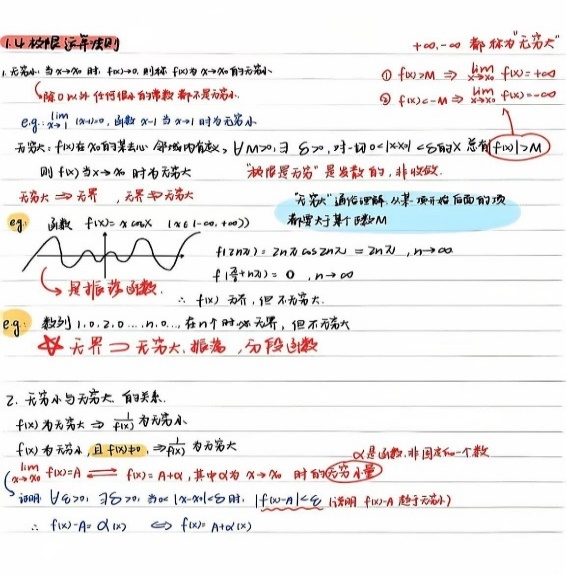 1.4 极限运算法则
+∞,-∞ 都称为"无穷大"
1. 无穷小: 当 x→x₀ 时, f(x)→0, 则称 f(x)为 x→x₀ 的无穷小
① f(x)>M ⇒ lim x→x₀ f(x)=+∞
除0以外任何很小的常数都不是无穷小.
② f(x)<-M ⇒ lim x→x₀ f(x)=-∞
e.g.: lim x→1 (x-1)=0, 函数 x-1 当x→1时为无穷小
无穷大: f(x)在x₀的某去心邻域内有定义, ∀M>0, ∃ δ>0, 对一切 0<|x-x₀|<δ的X 总有|f(x)|>M
则 f(x)当x→x₀ 时为无穷大
"极限是无穷"是发散的, 非收敛.
无穷大 ⇒ 无界, 无界 ⇏ 无穷大
"无穷大"通俗理解, 从某一项开始后面的项
都要大于某个函数M
eg: 函数 f(x)=x cosx (x∈(-∞,+∞))
f(2nπ)=2nπ cos2nπ=2nπ, n→∞
f(π/2+nπ)=0, n→∞
是振荡函数.
∴ f(x) 无界, 但不无穷大.
e.g: 数列 1,0,2,0...,n,0..., 在n个时 无界, 但不无穷大
☆ 无界 ⊃ 无穷大, 振荡, 分段函数
2. 无穷小与无穷大 的关系.
f(x)为无穷大 ⇒ 1/f(x) 为无穷小
f(x)为无穷小, 且f(x)≠0, ⇒ 1/f(x) 为无穷大
α是函数, 非固定的一个数
lim x→x₀ f(x)=A ⇌ f(x)=A+α, 其中α为 x→x₀ 时的无穷小量
证明: ∀ε>0, ∃δ>0, 当0<|x-x₀|<δ时, |f(x)-A|<ε (说明 f(x)-A 趋于无穷小)
∴ f(x)-A=α(x) ⇔ f(x)=A+α(x)